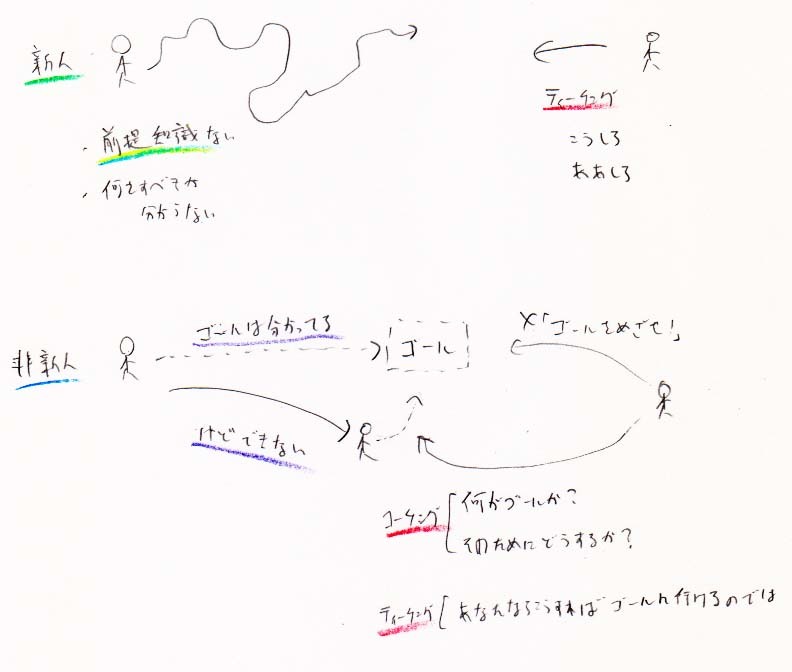 新人
ティーチング
・前提知識ない
こうしろ
ああしろ
・何をすべきか
分からない
ゴールは分かってる
ゴール
×「ゴールをめざせ!」
非新人
けどできない
コーチング
何がゴールか?
そのためにどうするか?
ティーチング
あなたならこうすればゴールへ行けるのでは